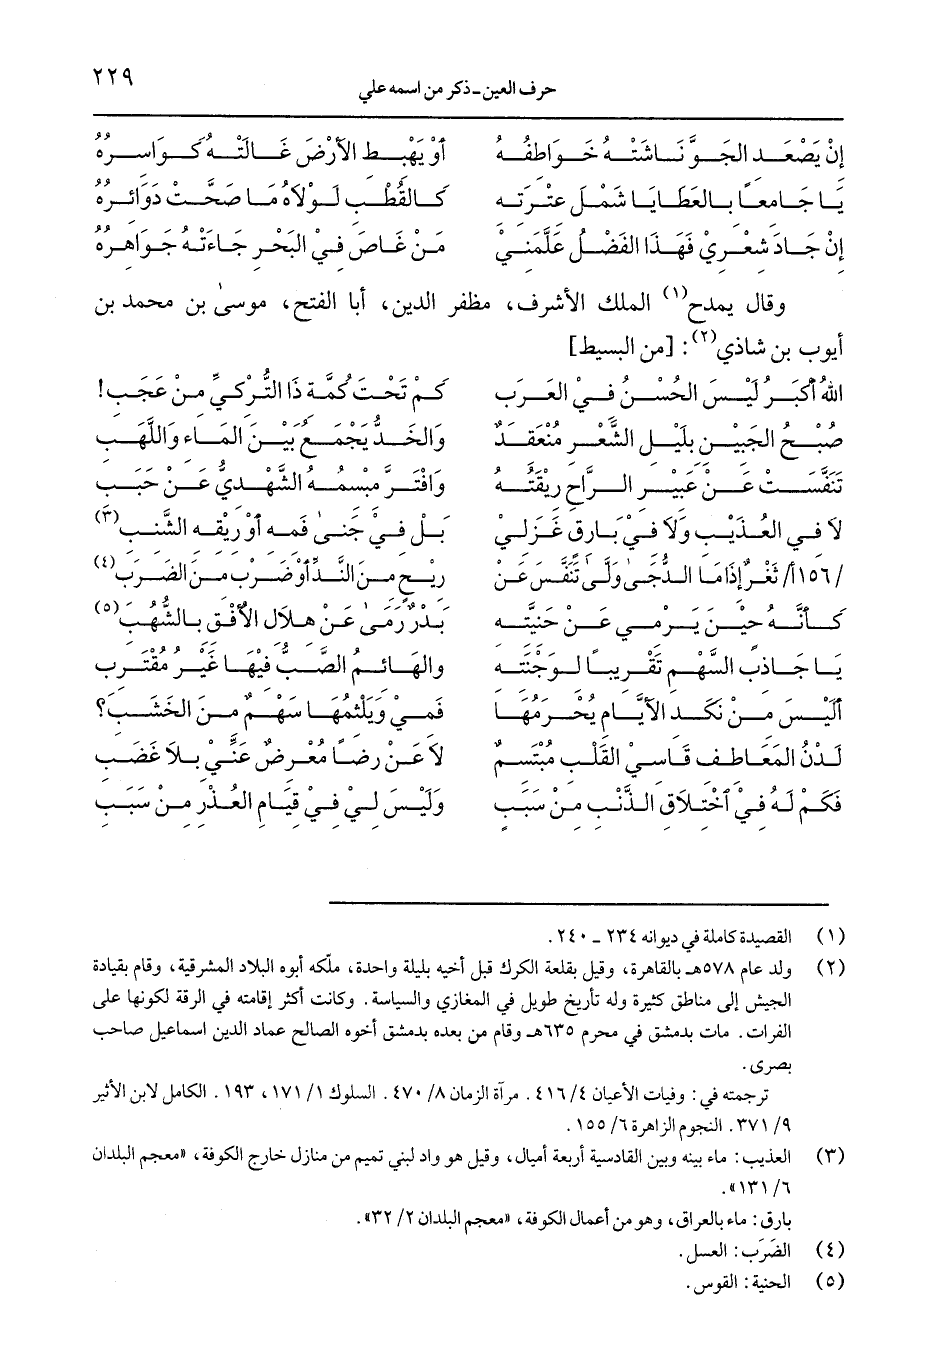 حرف العين ـ ذكر من اسمه علي ٢٢٩
إنْ يَصْعَدِ الجَوَّ نَاشَتْهُ خَوَاطِفُهُ أوْ يَهْبِطِ الأرْضَ غَالَتْهُ كَوَاسِرُهُ
يَا جَامِعاً بِالعَطَايَا شَمْلَ عِتْرَتِهِ كَالقُطْبِ لَوْلاهُ مَا صَحَّتْ دَوَائِرُهُ
إنْ جَادَ شِعْرِيْ فَهَذَا الفَضْلُ عَلَّمَنِيْ مَنْ غَاصَ فِي البَحْرِ جَاءَتْهُ جَوَاهِرُهُ
وقال يمدح(١) الملك الأشرف، مظفر الدين، أبا الفتح، موسىٰ بن محمد بن
أيوب بن شاذي(٢): [من البسيط]
اللهُ أكْبَرُ لَيْسَ الحُسْنُ فِي العَرَبِ كَمْ تَحْتَ كُمَّةِ ذَا التُّرْكِيِّ مِنْ عَجَبِ!
صُبْحُ الجَبِيْنِ بِلَيْلِ الشَّعْرِ مُنْعَقِدٌ وَالخَدُّ يَجْمَعُ بَيْنَ المَاءِ وَاللَّهَبِ
تَنَفَّسَتْ عَنْ عَبِيْرِ الرَّاحِ رِيْقَتُهُ وَافْتَرَّ مَبْسِمُهُ الشَّهْدِيُّ عَنْ حَبَبِ
لاَ فِي العُذَيْبِ وَلاَ فِيْ بَارِقٍ غَزَلِيْ بَلْ فِيْ جَنىٰ فَمِهِ أوْ رِيْقِهِ الشَّنِبِ(٣)
/١٥٦أ/ ثَغْرٌ إذَا مَا الدُّجَىٰ وَلَّىٰ تَنَفَّسَ عَنْ رِيْحٍ مِنَ النَّدِّ أوْ ضَرْبٍ مِنَ الضَّرَبِ(٤)
كَأنَّهُ حِيْنَ يَرْمِي عَنْ حَنِيَّتِهِ بَدْرٌ رَمَىٰ عَنْ هِلاَلِ الأُفْقِ بِالشُّهُبِ(٥)
يَا جَاذِبَ السَّهْمِ تَقْرِيباً لِوَجْنَتِهِ وَالهَائِمُ الصَّبُّ فِيْهَا غَيْرُ مُقْتَرِبِ
ألَيْسَ مِنْ نَكَدِ الأيَّامِ يُحْرَمُهَا فَمِيْ وَيَلْثِمُهَا سَهْمٌ مِنَ الخَشَبِ؟
لَدْنُ المَعَاطِفِ قَاسِيْ القَلْبِ مُبْتَسِمٌ لاَ عَنْ رِضاً مُعْرِضٌ عَنِّي بِلاَ غَضَبِ
فَكَمْ لَهُ فِيْ اخْتِلاَقِ الذَّنْبِ مِنْ سَبَبٍ وَلَيْسَ لِي فِيْ قِيَامِ العُذْرِ مِنْ سَبَبِ
(١) القصيدة كاملة في ديوانه ٢٣٤ ـ ٢٤٠.
(٢) ولد عام ٥٧٨هـ بالقاهرة، وقيل بقلعة الكرك قبل أخيه بليلة واحدة، ملّكه أبوه البلاد المشرقية، وقام بقيادة
الجيش إلى مناطق كثيرة وله تأريخ طويل في المغازي والسياسة. وكانت أكثر إقامته في الرقة لكونها على
الفرات. مات بدمشق في محرم ٦٣٥هـ وقام من بعده بدمشق أخوه الصالح عماد الدين اسماعيل صاحب
بصرى.
ترجمته في: وفيات الأعيان ٤/ ٤١٦. مرآة الزمان ٨/ ٤٧٠. السلوك ١/ ١٧١، ١٩٣. الكامل لابن الأثير
٩/ ٣٧١. النجوم الزاهرة ٦/ ١٥٥.
(٣) العذيب: ماء بينه وبين القادسية أربعة أميال، وقيل هو واد لبني تميم من منازل خارج الكوفة، «معجم البلدان
٦/ ١٣١».
بارق: ماء بالعراق، وهو من أعمال الكوفة، «معجم البلدان ٢/ ٣٢».
(٤) الضَرَب: العسل.
(٥) الحنية: القوس.